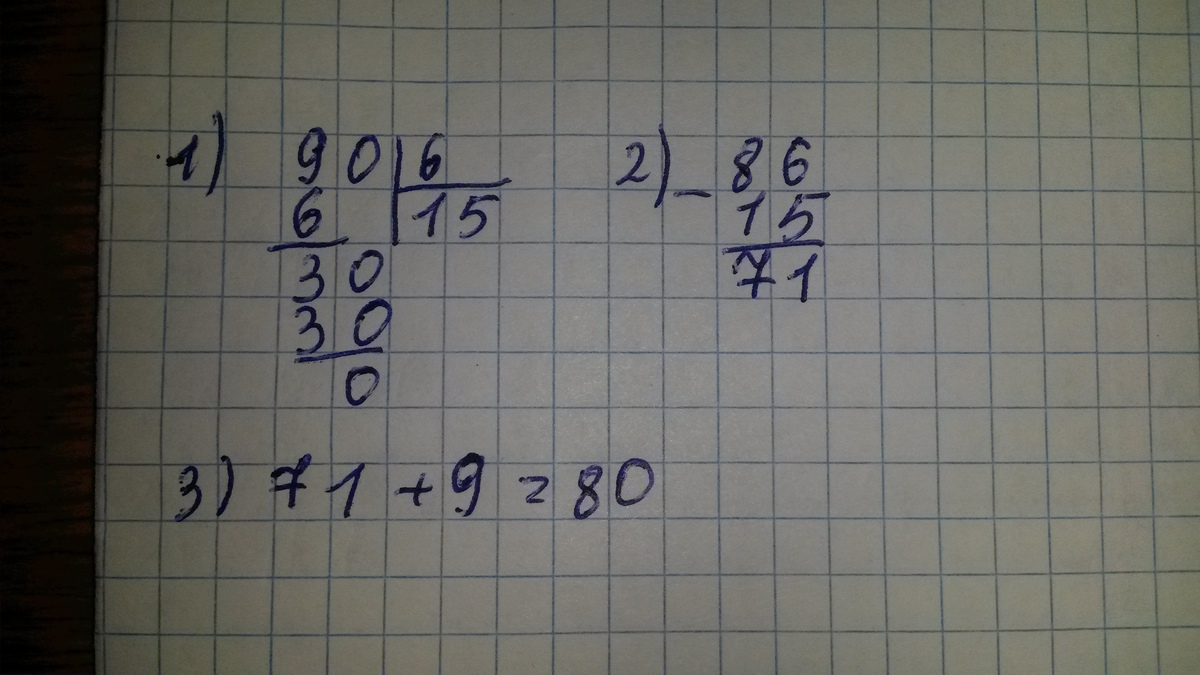 1) 90 | 6
6 | 15
30
30
0
2) - 86
15
71
3) 71 + 9 = 80